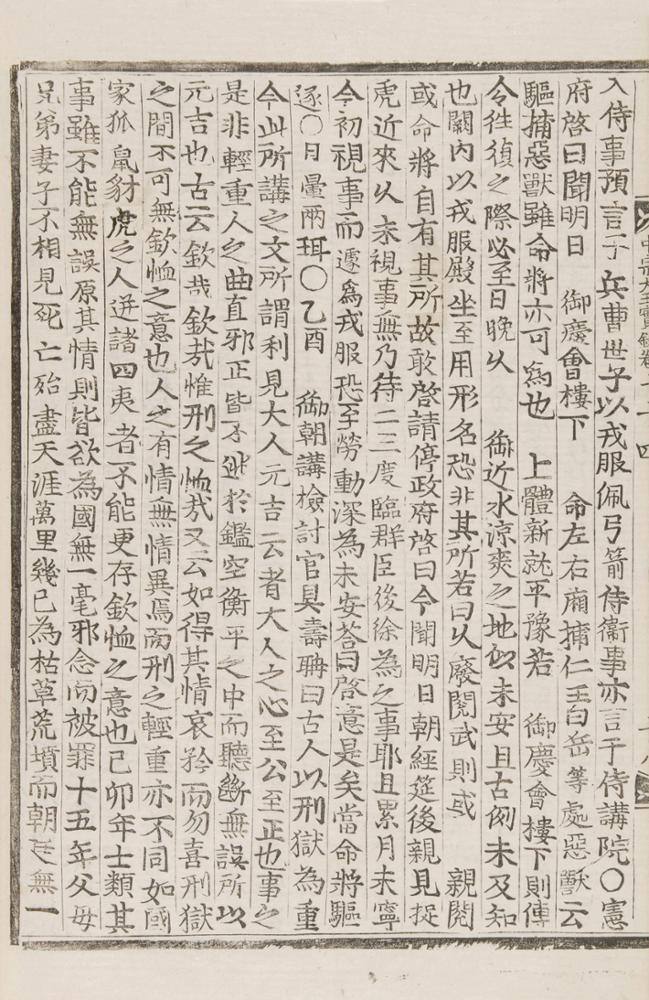 入侍事預言于兵曹世子以戎服佩弓箭侍衛事亦言于侍講院〇憲
府啓曰聞明日　御慶會樓下　命左右廂捕仁王白岳等處惡獸云
驅捕惡獸雖命將亦可爲也　上體新就平豫若　御慶會樓下則傳
令往復之際必至日晩久　御近水涼爽之地似未安且古例未及知
也闕內以戎服殿坐至用形名恐非其所若曰久廢閱武則或　親閱
或命將自有其所故敢啓請停政府啓曰今聞明日朝經筵後親見捉
虎近來久未視事無乃待二三度臨群臣後徐爲之事耶且累月未寧
今初視事而遽爲戎服恐至勞動深爲未安答曰啓意是矣當命將驅
逐〇月暈兩珥〇乙酉　御朝講檢討官具壽聃曰古人以刑獄為重
今此所講之文所謂利見大人元吉云者大人之心至公至正也事之
是非輕重人之曲直邪正皆不逃於鑑空衡平之中而聽斷無誤所以
元吉也古云欽哉欽哉惟刑之恤哉又云如得其情哀矜而勿喜刑獄
之間不可無欽恤之意也人之有情無情異焉而刑之輕重亦不同如國
家狐鼠豺虎之人迸諸四夷者不能更存欽恤之意也己卯年士類其
事雖不能無誤原其情則皆欲為國無一毫邪念而被罪十五年父母
兄弟妻子不相見死亡殆盡天涯萬里幾已為枯草荒墳而朝廷無一